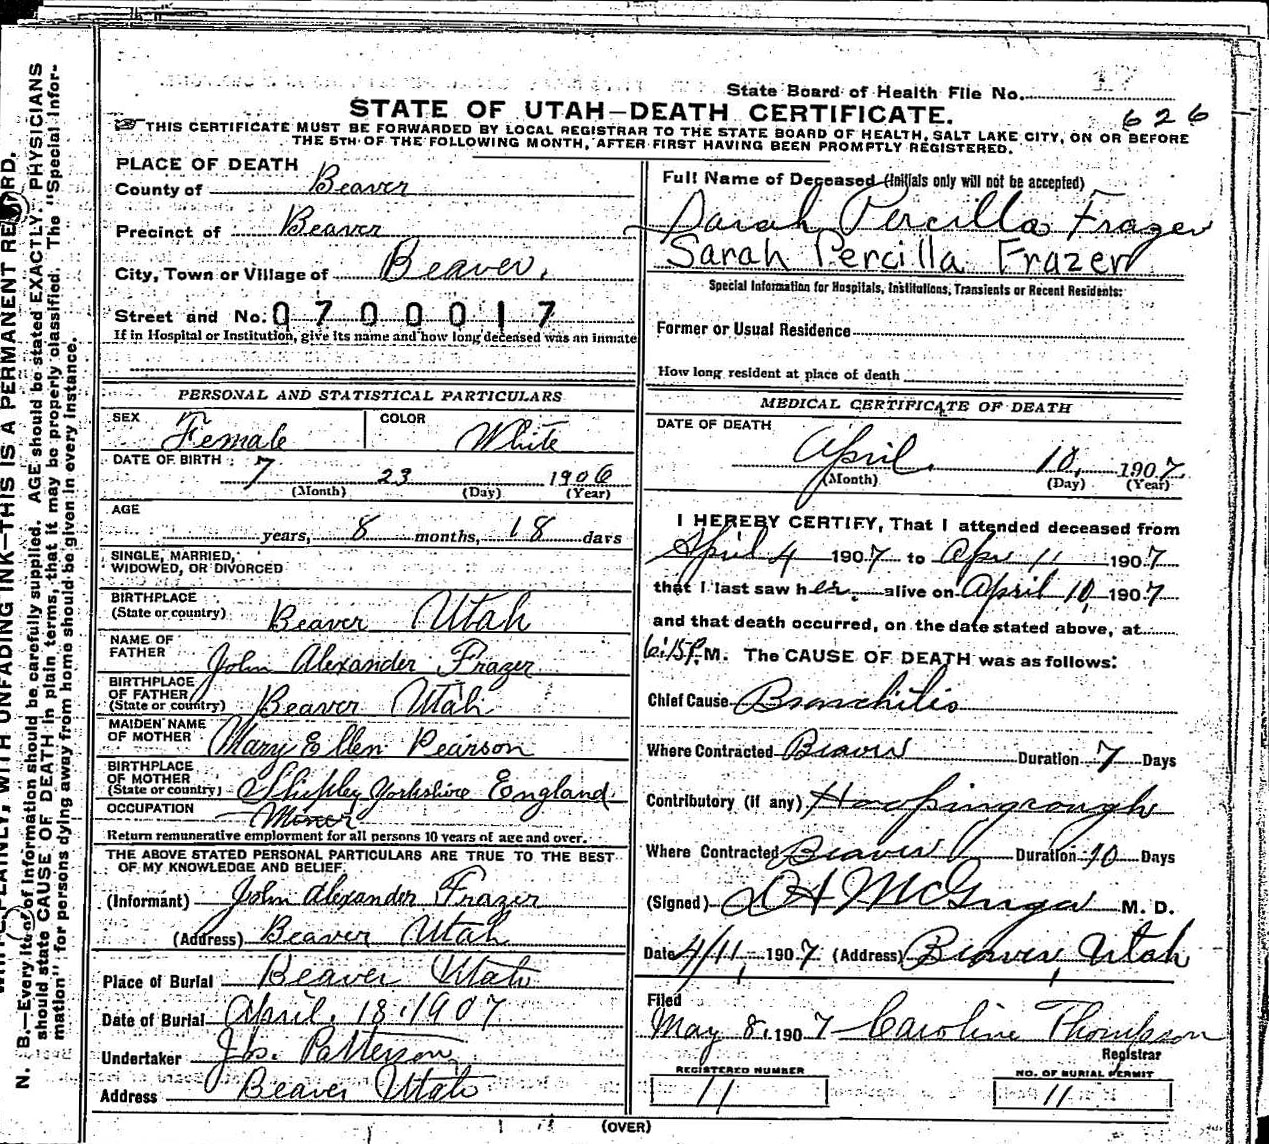 State Board of Health File No. 17
626
STATE OF UTAH—DEATH CERTIFICATE.
THIS CERTIFICATE MUST BE FORWARDED BY LOCAL REGISTRAR TO THE STATE BOARD OF HEALTH, SALT LAKE CITY, ON OR BEFORE
THE 5TH OF THE FOLLOWING MONTH, AFTER FIRST HAVING BEEN PROMPTLY REGISTERED.
PLACE OF DEATH
County of Beaver
Precinct of Beaver
City, Town or Village of Beaver.
Street and No. 0700017
If in Hospital or Institution, give its name and how long deceased was an inmate
PERSONAL AND STATISTICAL PARTICULARS
SEX Female COLOR White
DATE OF BIRTH 7 23 1906
(Month) (Day) (Year)
AGE
years, 8 months, 18 days
SINGLE, MARRIED,
WIDOWED, OR DIVORCED
BIRTHPLACE
(State or country) Beaver Utah
NAME OF
FATHER John Alexander Frazer
BIRTHPLACE
OF FATHER
(State or country) Beaver Utah
MAIDEN NAME
OF MOTHER Mary Ellen Pearson
BIRTHPLACE
OF MOTHER
(State or country) Shipley Yorkshire England
OCCUPATION Miner
Return remunerative employment for all persons 10 years of age and over.
THE ABOVE STATED PERSONAL PARTICULARS ARE TRUE TO THE BEST
OF MY KNOWLEDGE AND BELIEF
(Informant) John Alexander Frazer
(Address) Beaver Utah
Place of Burial Beaver Utah
Date of Burial April. 18. 1907
Undertaker Patterson
Address Beaver Utah
Full Name of Deceased (Initials only will not be accepted)
Sarah Percilla Frazer
Sarah Percilla Frazer
Special Information for Hospitals, Institutions, Transients or Recent Residents:
Former or Usual Residence
How long resident at place of death
MEDICAL CERTIFICATE OF DEATH
DATE OF DEATH
April 10, 1907
(Month) (Day) (Year)
I HEREBY CERTIFY, That I attended deceased from
April 4 1907 to Apr 11 1907
that I last saw her alive on April 10, 1907
and that death occurred, on the date stated above, at
6:15 P. M. The CAUSE OF DEATH was as follows:
Chief Cause Bronchitis
Where Contracted Beaver Duration 7 Days
Contributory (if any) Hoopingcough
Where Contracted Beaver Duration 10 Days
(Signed) McGuga M. D.
Date 4/11, 1907 (Address) Beaver, Utah
Filed
May 8. 1907 Caroline Thompson
Registrar
REGISTERED NUMBER
11
NO. OF BURIAL PERMIT
11
(OVER)
PLAINLY, WITH UNFADING INK—THIS IS A PERMANENT RECORD.
N. B.—Every item of information should be carefully supplied. AGE should be stated EXACTLY. PHYSICIANS
should state CAUSE OF DEATH in plain terms, that it may be properly classified. The "Special Infor-
mation" for persons dying away from home should be given in every instance.